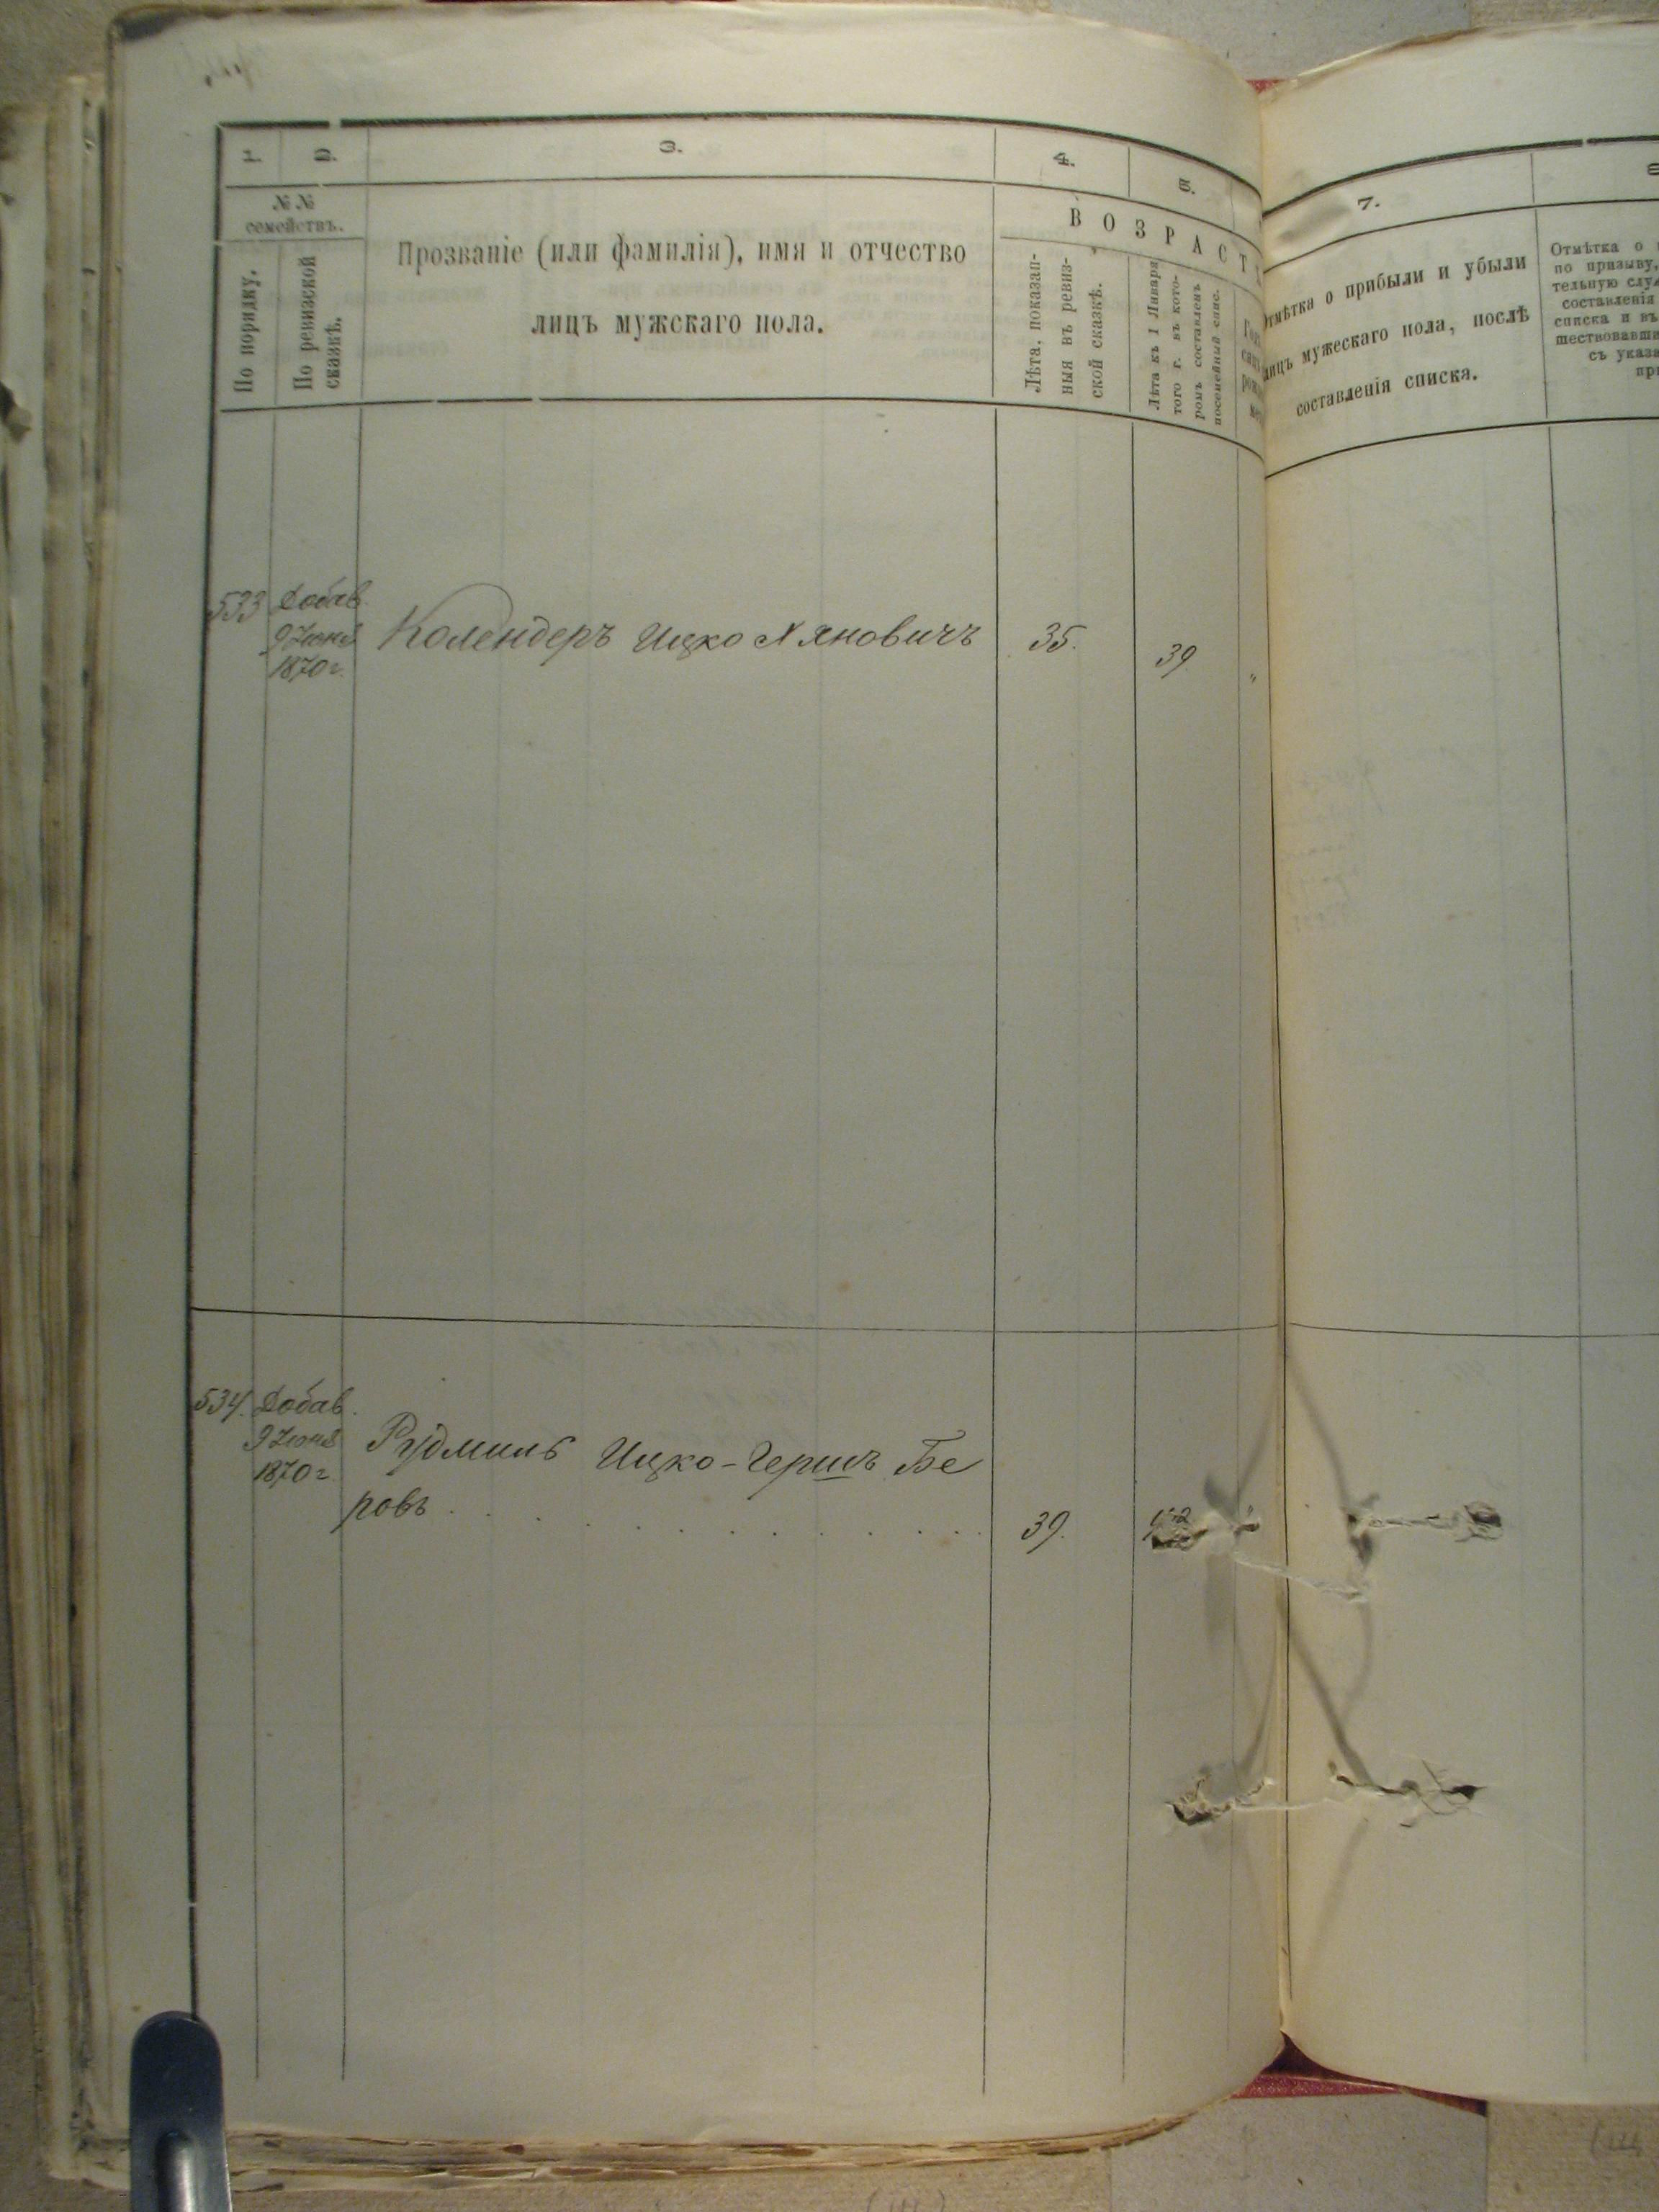 1.
2.
3.
4.
5.
7.
№ №
семействъ.
По порядку.
По ревизской
сказкѣ.
Прозваніе (или фамилія), имя и отчество
лицъ мужскаго пола.
ВОЗРАСТ
Лѣта, показан-
ныя въ ревиз-
ской сказкѣ.
Лѣта къ 1 Января
того г. въ кото-
ромъ составленъ
посемейный спис.
Отмѣтка о прибыли и убыли
лицъ мужескаго пола, послѣ
составленія списка.
Отмѣтка о
по призыву,
тельную слу
составленія
списка и въ
шествовавши
съ указа
при
533 Добав.
9 Іюня
1870 г.
Колендеръ Ицко Хяновичъ 35. 39 "
534. Добав.
9 Іюня
1870 г.
Рудмиль Ицко-Гершъ Бе
ровъ . . . . . . . . . . . . 39.